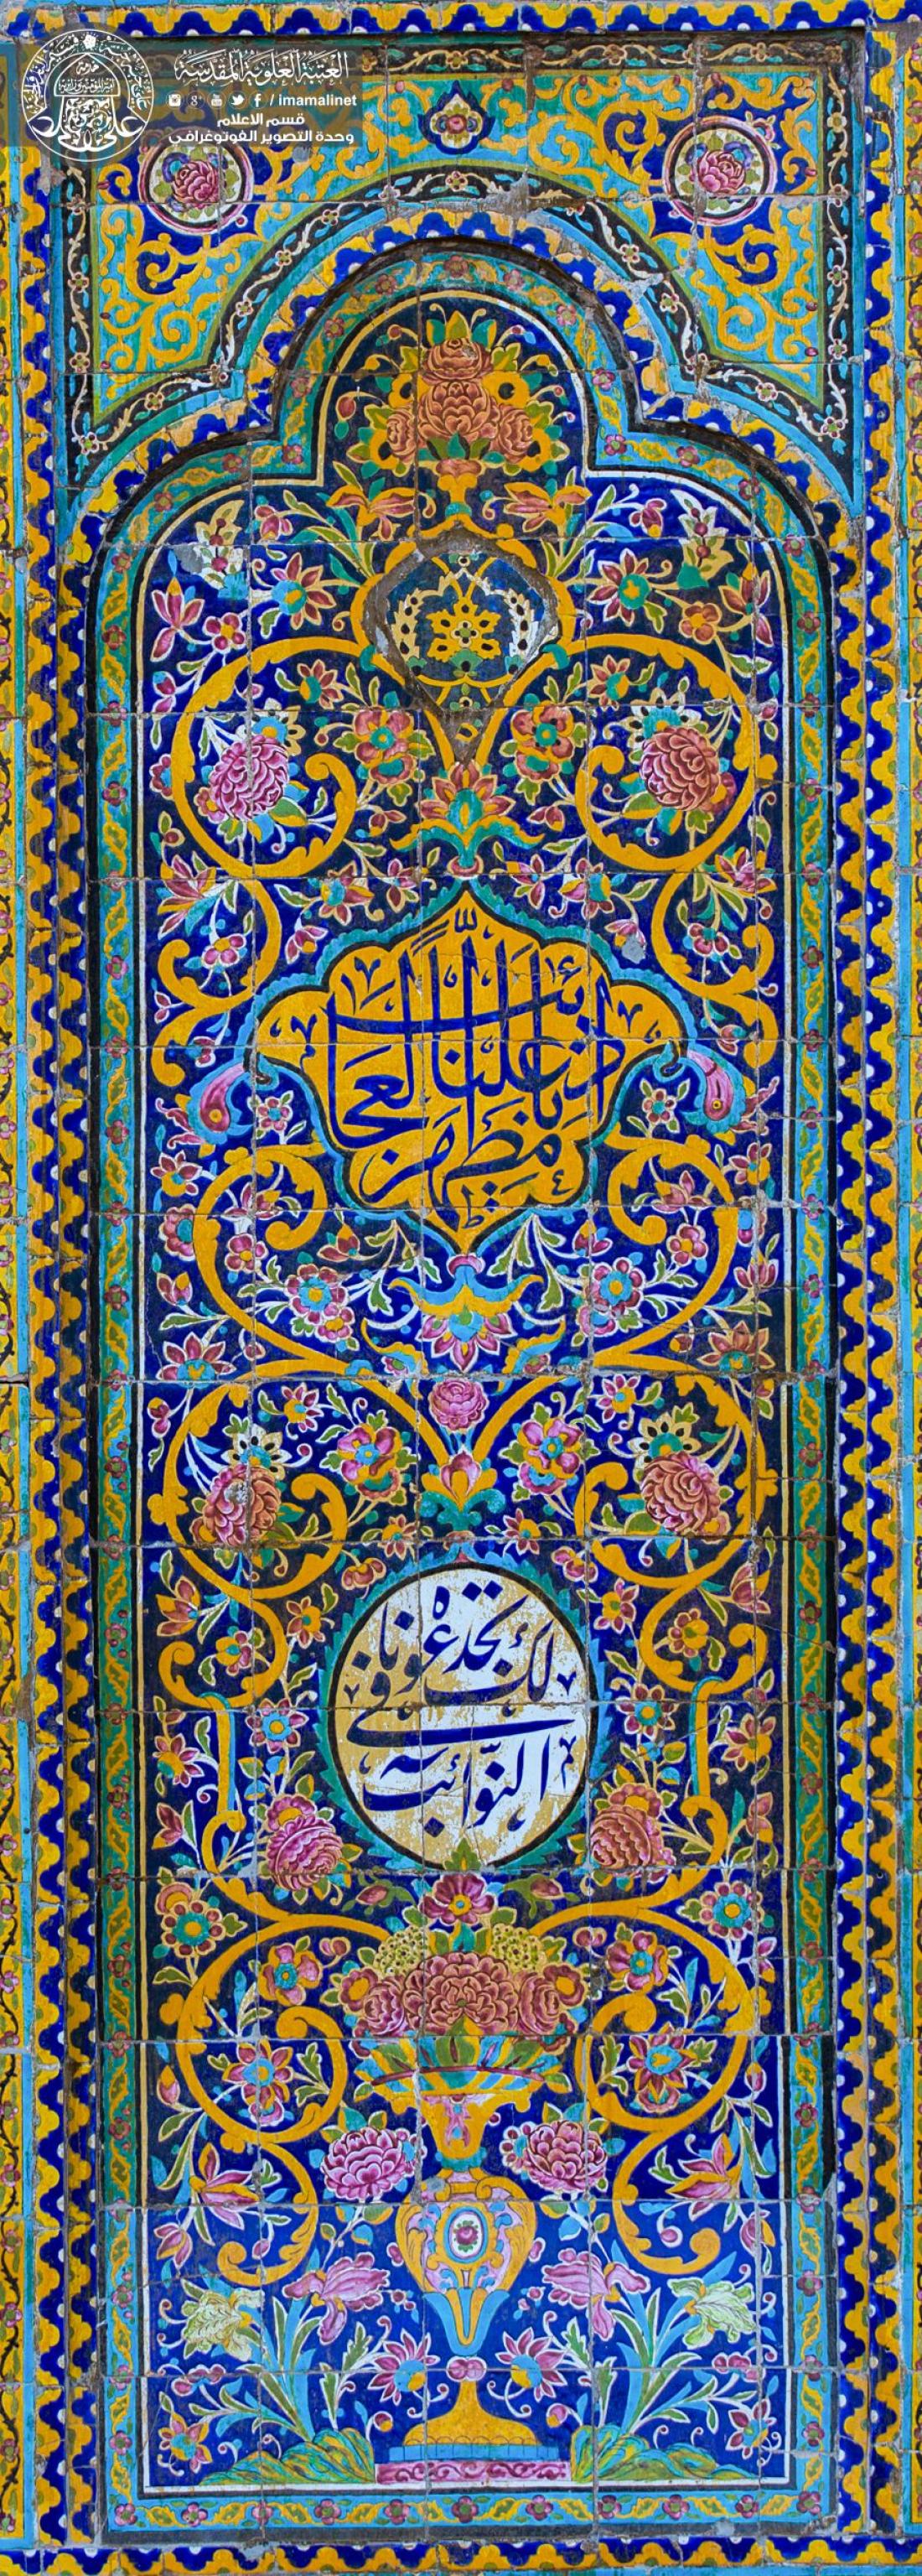 العتبة العلوية المقدسة
/ imamalinet
قسم الاعلام
وحدة التصوير الفوتوغرافي
ناد علیا
مظهر العجائب
تجده عونا
لك فی
النوائب